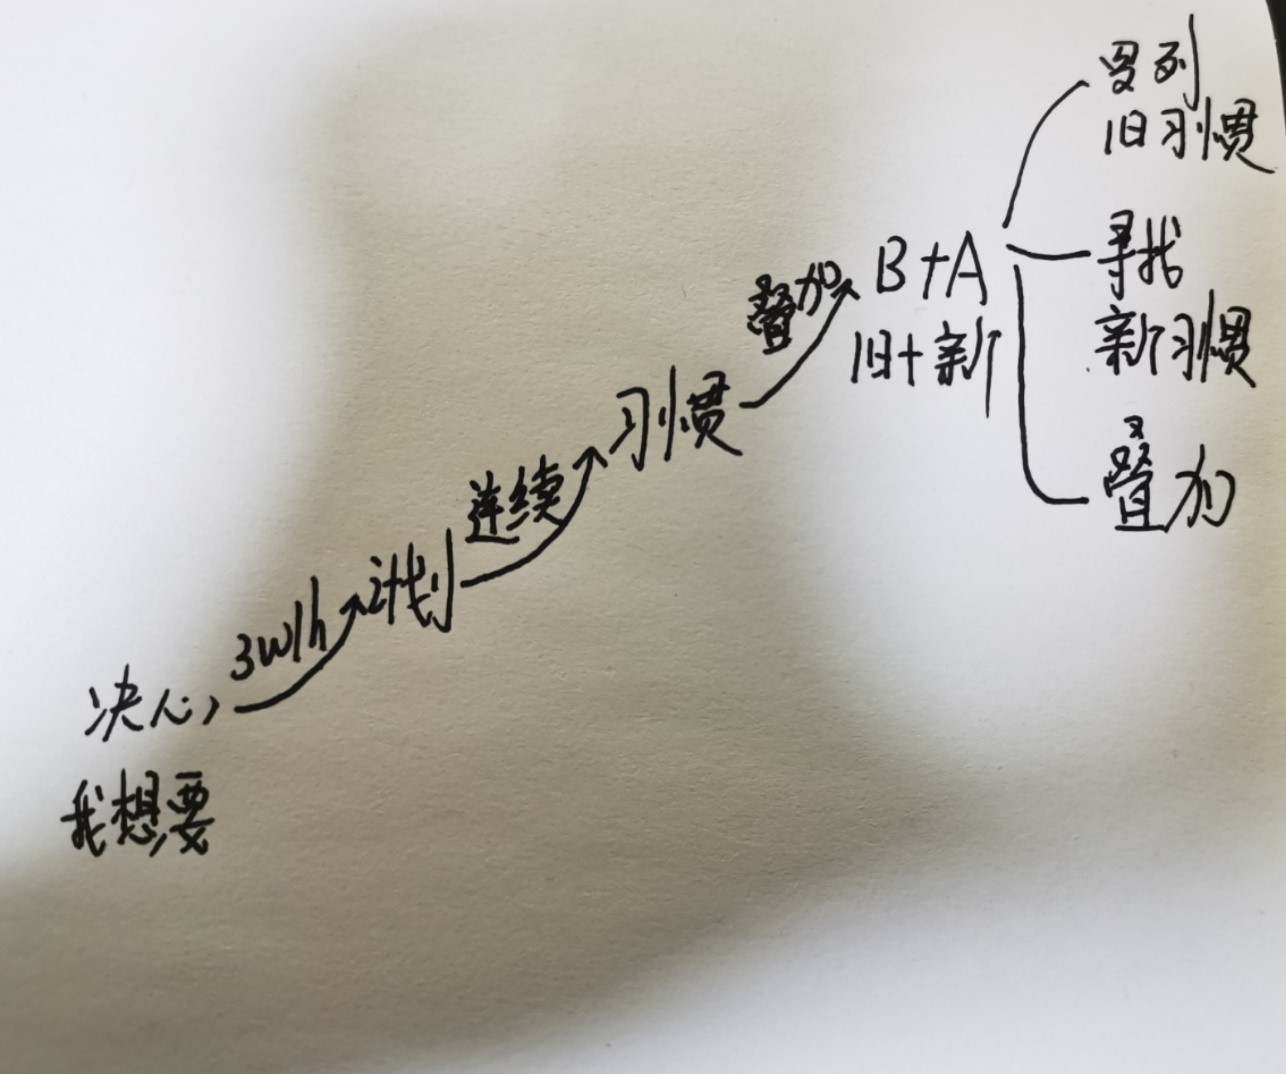 决心
我想要
3w1h
计划
连续
习惯
叠加
B+A
旧+新
罗列
旧习惯
寻找
新习惯
叠加